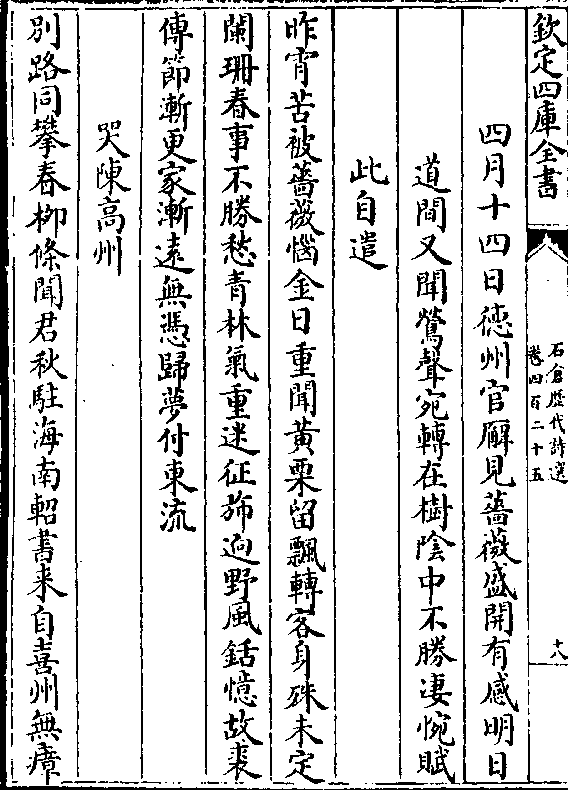 欽定四庫全書
石倉歴代詩選
卷四百二十五
十八
四月十四日徳州官廨見薔薇盛開有感明日
道間又聞鶯聲宛轉在樹陰中不勝凄惋賦
此自遣
昨宵苦被薔薇惱金日重聞黄栗留飄轉客身殊未定
闌珊春事不勝愁青林氣重迷征斾逈野風銛憶故裘
傳節漸更家漸逺無憑歸夢付東流
哭陳高州
别路同攀春栁條聞君秋駐海南軺書来自喜州無瘴